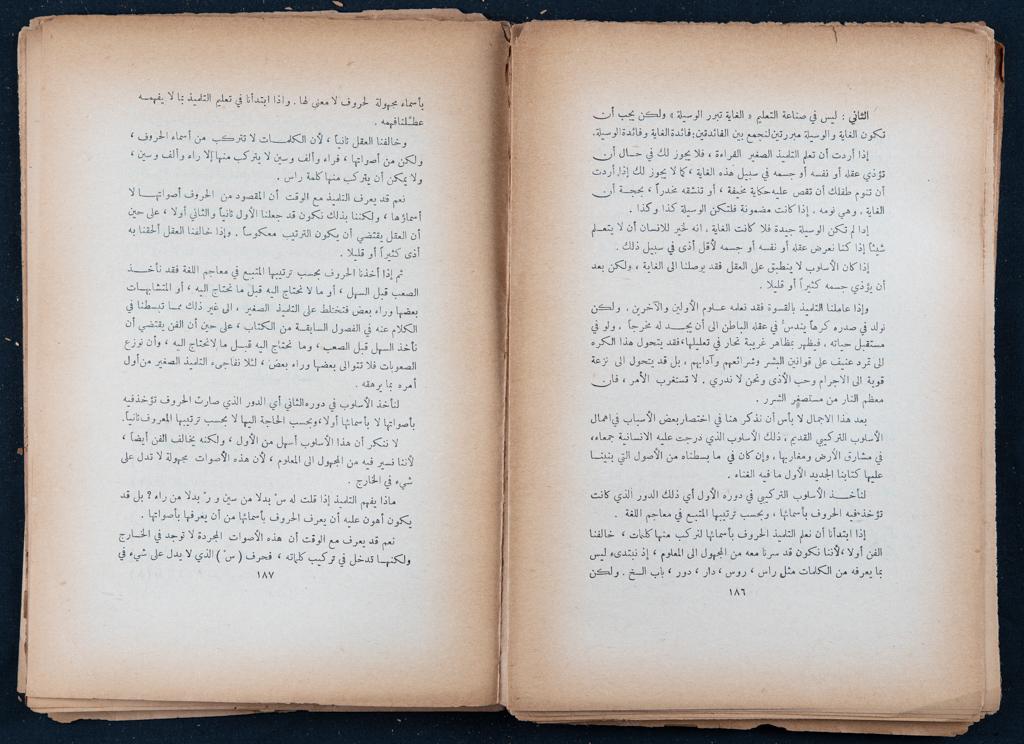 الثاني : ليس في صناعة التعليم « الغاية تبرر الوسيلة » ولكن يجب أن
تكون الغاية والوسيلة مبررتين لنجمع بين الفائدتين: فائدة الغاية وفائدة الوسيلة.
إذا أردت أن تعلم التلميذ الصغير القراءة ، فلا يجوز لك في حال أن
تؤذي عقله أو نفسه أو جسمه في سبيل هذه الغاية ، كما لا يجوز لك إذا أردت
أن تنوم طفلك أن تقص عليه حكاية مخيفة ، أو تنشقه مخدراً ، بحجة أن
الغاية ، وهي نومه ، إذا كانت مضمونة فلتكن الوسيلة كذا وكذا .
إذا لم تكن الوسيلة جيدة فلا كانت الغاية ، انه لخير للانسان أن لا يتعلم
شيئاً إذا كنا نعرض عقله أو نفسه أو جسمه لأقل أذى في سبيل ذلك .
إذا كان الأسلوب لا ينطبق على العقل فقد يوصلنا الى الغاية ، ولكن بعد
أن يؤذي جسمه كثيراً أو قليلا .
وإذا عاملنا التلميذ بالقسوة فقد نعلمه علوم الأولين والآخرين . ولكن
نولد في صدره كرهاً يندسّ في عقله الباطن الى أن يجد له مخرجاً . ولو في
مستقبل حياته ، فيظهر بمظاهر غريبة نحار في تعليلها، فقد يتحول هذا الكره
الى تمرد عنيف على قوانين البشر وشرائعهم وآدابهم ، بل قد يتحول الى نزعة
قوية الى الاجرام وحب الأذى ونحن لا ندري . لا تستغرب الأمر ، فان
معظم النار من مستصغر الشرر .
بعد هذا الاجمال لا بأس أن نذكر هنا في اختصار بعض الأسباب في اهمال
الأسلوب التركيبي القديم ، ذلك الأسلوب الذي درجت عليه الانسانية جمعاء،
في مشارق الأرض ومغاربها ، وإن كان في ما بسطناه من الأصول التي بنينا
عليها كتابنا الجديد الأول ما فيه الغناء .
لنأخذ الأسلوب التركيبي في دوره الأول أي ذلك الدور الذي كانت
تؤخذ فيه الحروف بأسمائها ، وبحسب ترتيبها المتبع في معاجم اللغة .
إذا ابتدأنا أن نعلم التلميذ الحروف بأسمائها لنركب منها كلمات ، خالفنا
الفن أولا ، لأننا نكون قد سرنا معه من المجهول الى المعلوم ، إذ نبتدىء ليس
بما يعرفه من الكلمات مثل راس ، روس ، دار ، دور ، باب الخ . ولكن
١٨٦
بأسماء مجهولة لحروف لا معنى لها . واذا ابتدأنا في تعليم التلميذ بما لا يفهمه
عطّلنا فهمه .
وخالفنا العقل ثانياً ، لأن الكلمات لا تتركب من أسماء الحروف ،
ولكن من أصواتها ، فراء وألف وسين لا يتركب منها إلا راء وألف وسين ،
ولا يمكن أن يتركب منها كلمة راس .
نعم قد يعرف التلميذ مع الوقت أن المقصود من الحروف أصواتها لا
أسماؤها ، ولكننا بذلك نكون قد جعلنا الأول ثانياً والثاني أولا ، على حين
أن العقل يقتضي أن يكون الترتيب معكوساً . وإذا خالفنا العقل ألحقنا به
أذى كثيراً أو قليلا .
ثم إذا أخذنا الحروف بحسب ترتيبها المتبع في معاجم اللغة فقد نأخذ
الصعب قبل السهل ، أو ما لا نحتاج اليه قبل ما نحتاج اليه ، أو المتشابهات
بعضها وراء بعض فتختلط على التلميذ الصغير ، الى غير ذلك مما تبسطنا في
الكلام عنه في الفصول السابقة من الكتاب ، على حين أن الفن يقتضي أن
نأخذ السهل قبل الصعب، وما نحتاج اليه قبل ما لانحتاج اليه ، وأن نوزع
الصعوبات فلا تتوالى بعضها وراء بعض ، لئلا نفاجىء التلميذ الصغير من أول
أمره بما يرهقه .
لنأخذ الأسلوب في دوره الثاني أي الدور الذي صارت الحروف تؤخذ فيه
بأصواتها لا بأسمائها أولا، وبحسب الحاجة اليها لا بحسب ترتيبها المعروف ثانياً.
لا ننكر أن هذا الأسلوب أسهل من الأول ، ولكنه يخالف الفن أيضاً ،
لأننا نسير فيه من المجهول الى المعلوم ، لأن هذه الأصوات مجهولة لا تدل على
شيء في الخارج .
ماذا يفهم التلميذ إذا قلت له سْ بدلا من سين و رْ بدلا من راء ؟ بل قد
يكون أهون عليه أن يعرف الحروف بأسمائها من أن يعرفها بأصواتها .
نعم قد يعرف مع الوقت أن هذه الأصوات المجردة لا توجد في الخارج
ولكنها تدخل في تركيب كلماته ، فحرف ( سْ ) الذي لا يدل على شيء في
١٨٧